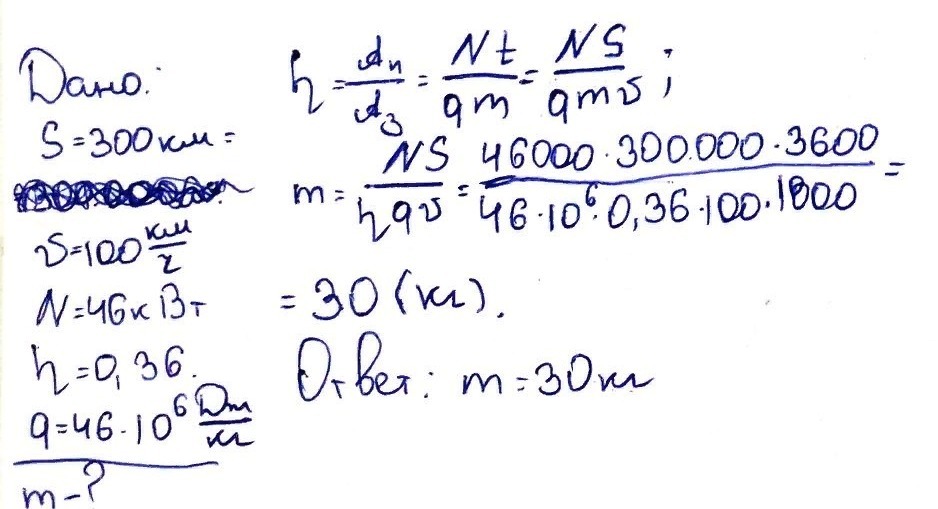 Дано:
S = 300 км =
υ = 100 км/г
N = 46 кВт
η = 0,36.
q = 46 · 10⁶ Дж/кг
m - ?
η = Aп/Aз = Nt/qm = NS/qmυ ;
m = NS/ηqυ = 46000 · 300.000 · 3600 / 46 · 10⁶ · 0,36 · 100 · 1000 =
= 30 (кг).
Ответ: m = 30 кг